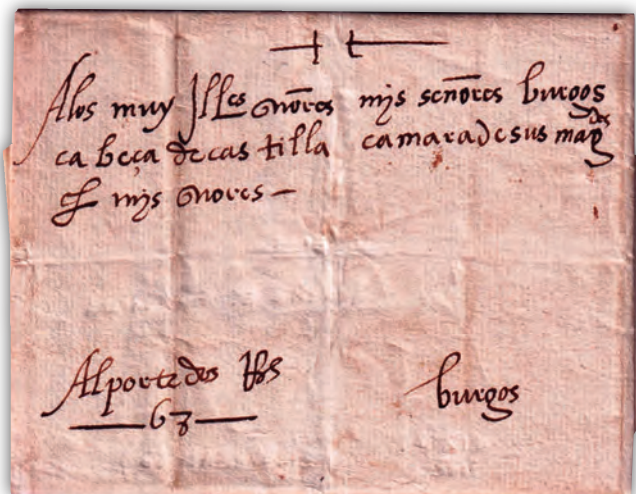 Alos muy Illes señores mis señores burgos
cabeça decastilla camaradesus mag des
mis señores
Alporte dos Rs
burgos